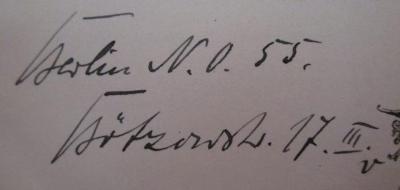 Berlin N.O. 55.
Bötzowstr. 17. III.